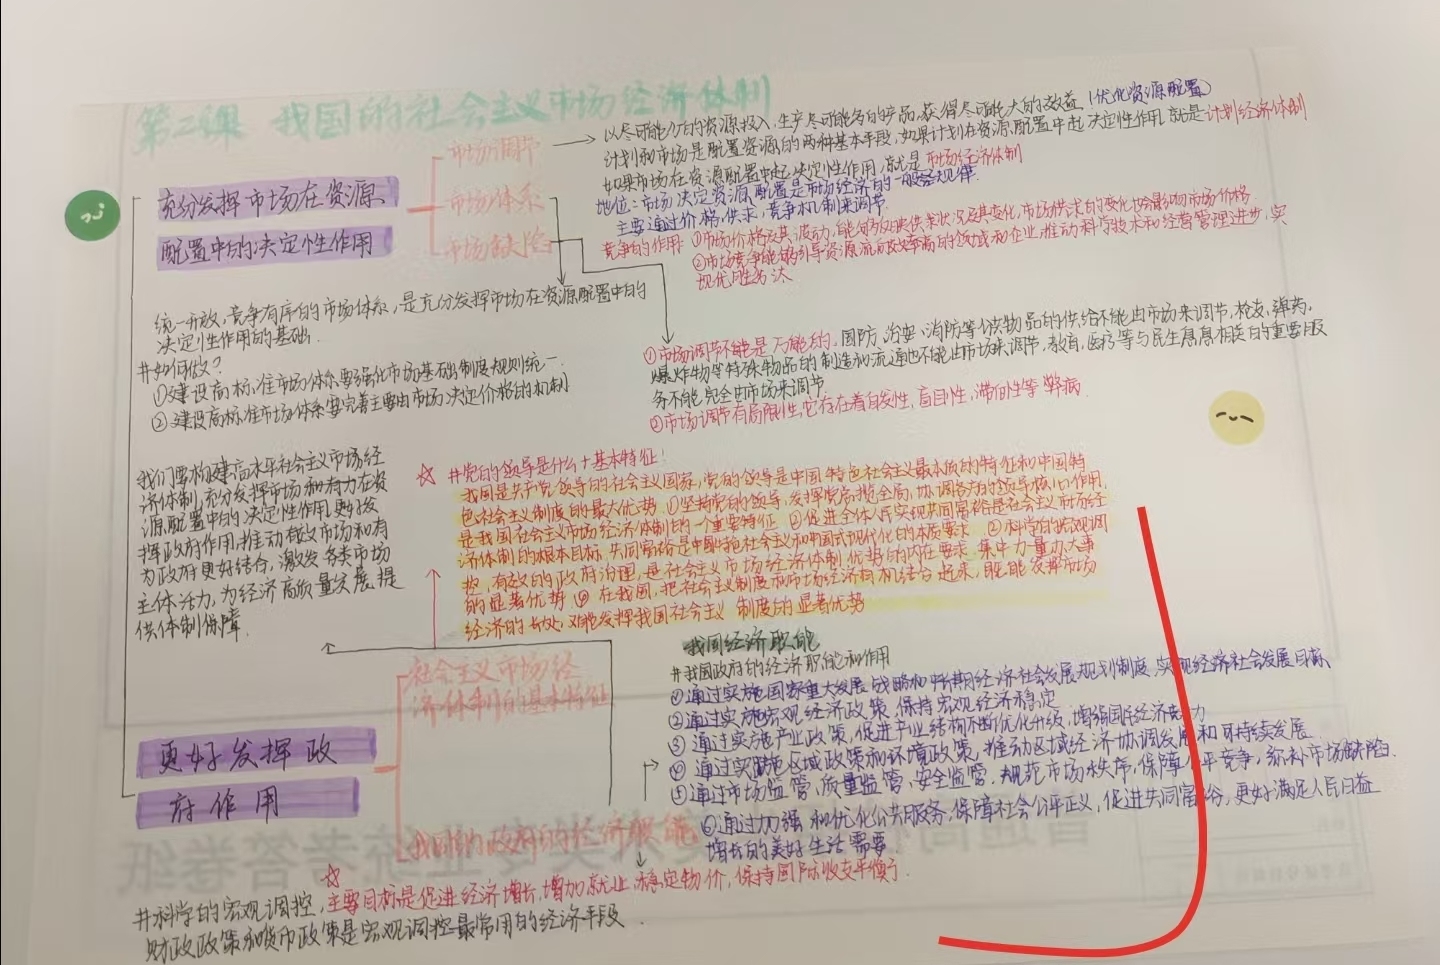 第二课 我国的社会主义市场经济体制
充分发挥市场在资源
配置中的决定性作用
市场调节
市场体系
市场缺陷
以尽可能少的资源投入,生产尽可能多的产品,获得尽可能大的效益(优化资源配置)
计划和市场是配置资源的两种基本手段,如果计划在资源配置中起决定性作用,就是计划经济体制
如果市场在资源配置中起决定性作用,就是市场经济体制
地位:市场决定资源配置是市场经济的一般规律.
主要通过价格,供求,竞争机制来调节
竞争的作用:①市场价格及其波动,能够反映供求状况及其变化,市场供求的变化也会影响市场价格
②市场竞争能够引导资源流向效率高的领域和企业,推动科学技术和经营管理进步,实
现优胜劣汰
统一开放,竞争有序的市场体系,是充分发挥市场在资源配置中的
决定性作用的基础.
#如何做?
①建设高标准市场体系要强化市场基础制度规则统一.
②建设高标准市场体系要完善主要由市场决定价格的机制
①市场调节不能是万能的,国防、治安、消防等公共物品的供给不能由市场来调节,枪支,弹药,
爆炸物等特殊物品的制造和流通也不能由市场来调节,教育,医疗等与民生息息相关的重要服
务不能完全由市场来调节
②市场调节有局限性,它存在着自发性,盲目性,滞后性等弊病.
我们要构建高水平社会主义市场经
济体制,充分发挥市场和有力在资
源配置中的决定性作用,更好发
挥政府作用,推动有效市场和有
为政府更好结合,激发各类市场
主体活力,为经济高质量发展提
供体制保障.
#党的领导是什么+基本特征!
我国是共产党领导的社会主义国家,党的领导是中国特色社会主义最本质的特征和中国特
色社会主义制度的最大优势.①坚持党的领导,发挥党总揽全局,协调各方的领导核心作用,
是我国社会主义市场经济体制的一个重要特征 ②促进全体人民实现共同富裕是社会主义市场经
济体制的根本目标,共同富裕是中国特色社会主义和中国式现代化的本质要求 ③科学的宏观调
控,有效的政府治理,是社会主义市场经济体制优势的内在要求.集中力量办大事
的显著优势 ④在我国,把社会主义制度和市场经济有机结合起来,既能发挥市场
经济的长处,又能发挥我国社会主义制度的显著优势
更好发挥政
府作用
社会主义市场经
济体制的基本特征
我国的政府的经济职能
我国经济职能
#我国政府的经济职能和作用
①通过实施国家重大发展战略和中长期经济社会发展规划制度,实现经济社会发展目标
②通过实施宏观经济政策,保持宏观经济稳定
③通过实施产业政策,促进产业结构不断优化升级,增强国民经济竞争力
④通过实施区域政策和环境政策,推动区域经济协调发展和可持续发展
⑤通过市场监管、质量监管、安全监管,规范市场秩序,保障公平竞争,弥补市场缺陷.
⑥通过加强和优化公共服务,保障社会公平正义,促进共同富裕,更好满足人民日益
增长的美好生活需要.
#科学的宏观调控,主要目标是促进经济增长,增加就业,稳定物价,保持国际收支平衡.
财政政策和货币政策是宏观调控最常用的经济手段.